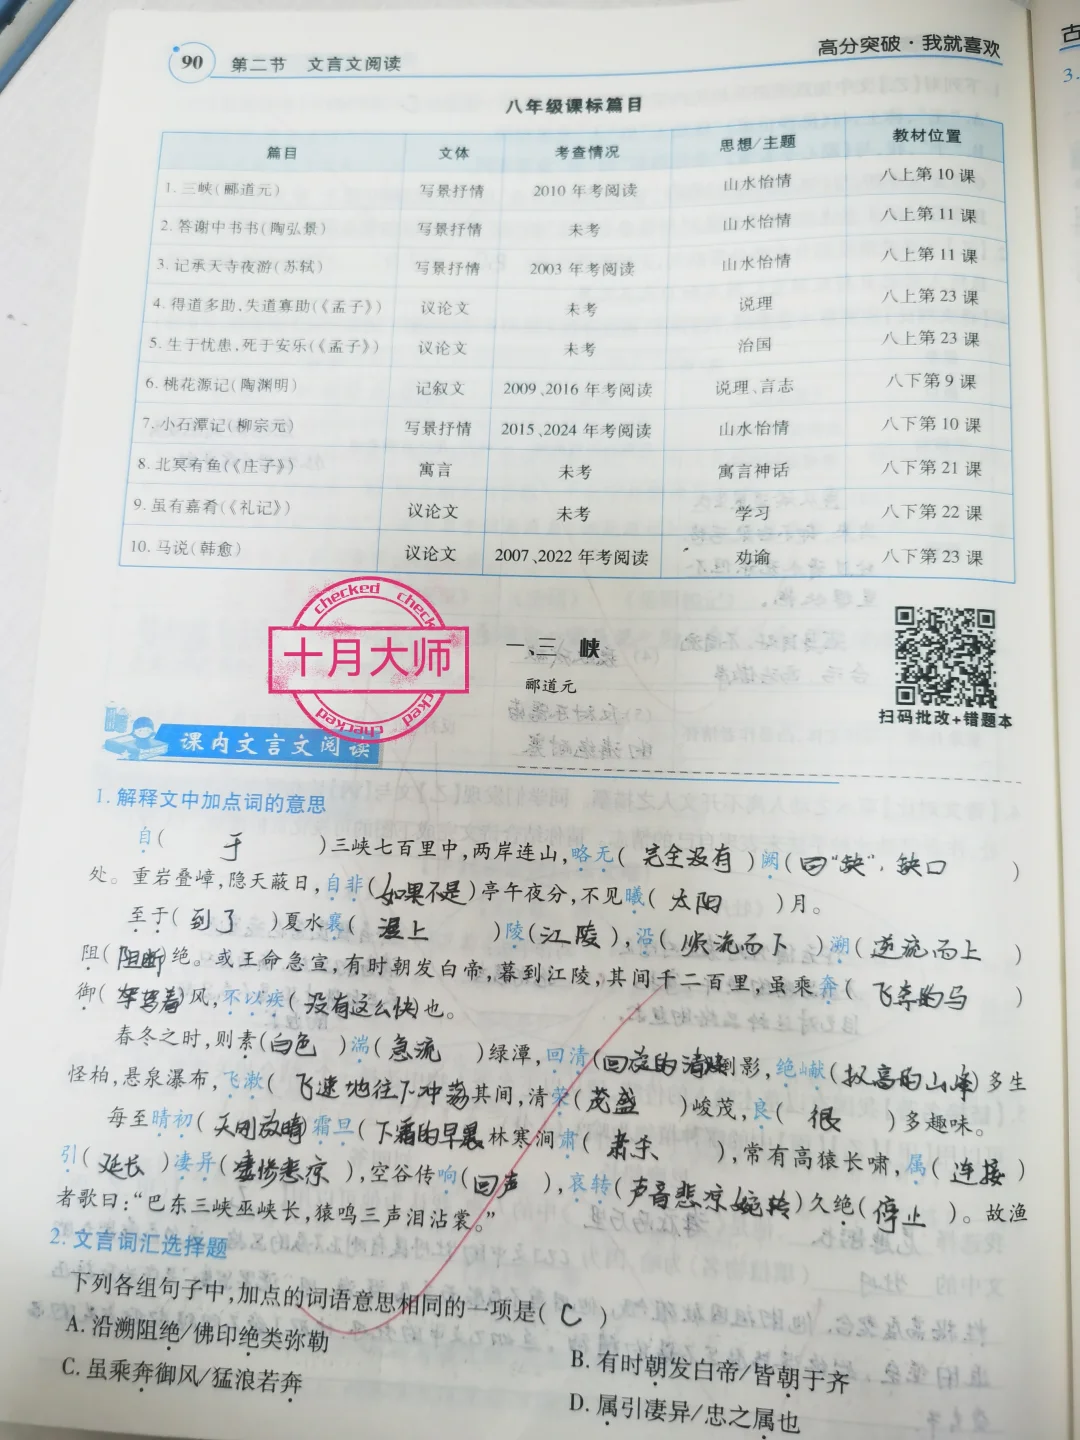 90 第二节 文言文阅读
高分突破·我就喜欢
八年级课标篇目
篇目 文体 考查情况 思想/主题 教材位置
1.三峡(郦道元) 写景抒情 2010 年考阅读 山水怡情 八上第 10 课
2.答谢中书书(陶弘景) 写景抒情 未考 山水怡情 八上第 11 课
3.记承天寺夜游(苏轼) 写景抒情 2003 年考阅读 山水怡情 八上第 11 课
4.得道多助,失道寡助(《孟子》) 议论文 未考 说理 八上第 23 课
5.生于忧患,死于安乐(《孟子》) 议论文 未考 治国 八上第 23 课
6.桃花源记(陶渊明) 记叙文 2009、2016 年考阅读 说理、言志 八下第 9 课
7.小石潭记(柳宗元) 写景抒情 2015、2024 年考阅读 山水怡情 八下第 10 课
8.北冥有鱼(《庄子》) 寓言 未考 寓言神话 八下第 21 课
9.虽有嘉肴(《礼记》) 议论文 未考 学习 八下第 22 课
10.马说(韩愈) 议论文 2007、2022 年考阅读 劝谕 八下第 23 课
checked checked
十月大师
checked
一、三 峡
郦道元
扫码批改+错题本
课内文言文阅读
1.解释文中加点词的意思
自( 于 )三峡七百里中,两岸连山,略无( 完全没有 )阙( 同“缺”,缺口 )
处。重岩叠嶂,隐天蔽日,自非(如果不是)亭午夜分,不见曦( 太阳 )月。
至于( 到了 )夏水襄( 漫上 )陵(江陵),沿( 顺流而下 )溯( 逆流而上 )
阻(阻断)绝。或王命急宣,有时朝发白帝,暮到江陵,其间千二百里,虽乘奔( 飞奔的马 )
御(驾着)风,不以疾( 没有这么快)也。
春冬之时,则素(白色)湍( 急流 )绿潭,回清(回旋的清波)倒影,绝巘(极高的山峰)多生
怪柏,悬泉瀑布,飞漱( 飞速地往下冲荡其间,清荣(茂盛 )峻茂,良( 很 )多趣味。
每至晴初(天刚放晴)霜旦(下霜的早晨林寒涧肃( 肃杀 ),常有高猿长啸,属( 连接 )
引( 延长 )凄异(凄惨悲凉 ),空谷传响(回声 ),哀转(声音悲凉婉转)久绝(停止 )。故渔
者歌曰:“巴东三峡巫峡长,猿鸣三声泪沾裳。”
2.文言词汇选择题
下列各组句子中,加点的词语意思相同的一项是( C )
A.沿溯阻绝/佛印绝类弥勒
B.有时朝发白帝/皆朝于齐
C.虽乘奔御风/猛浪若奔
D.属引凄异/忠之属也